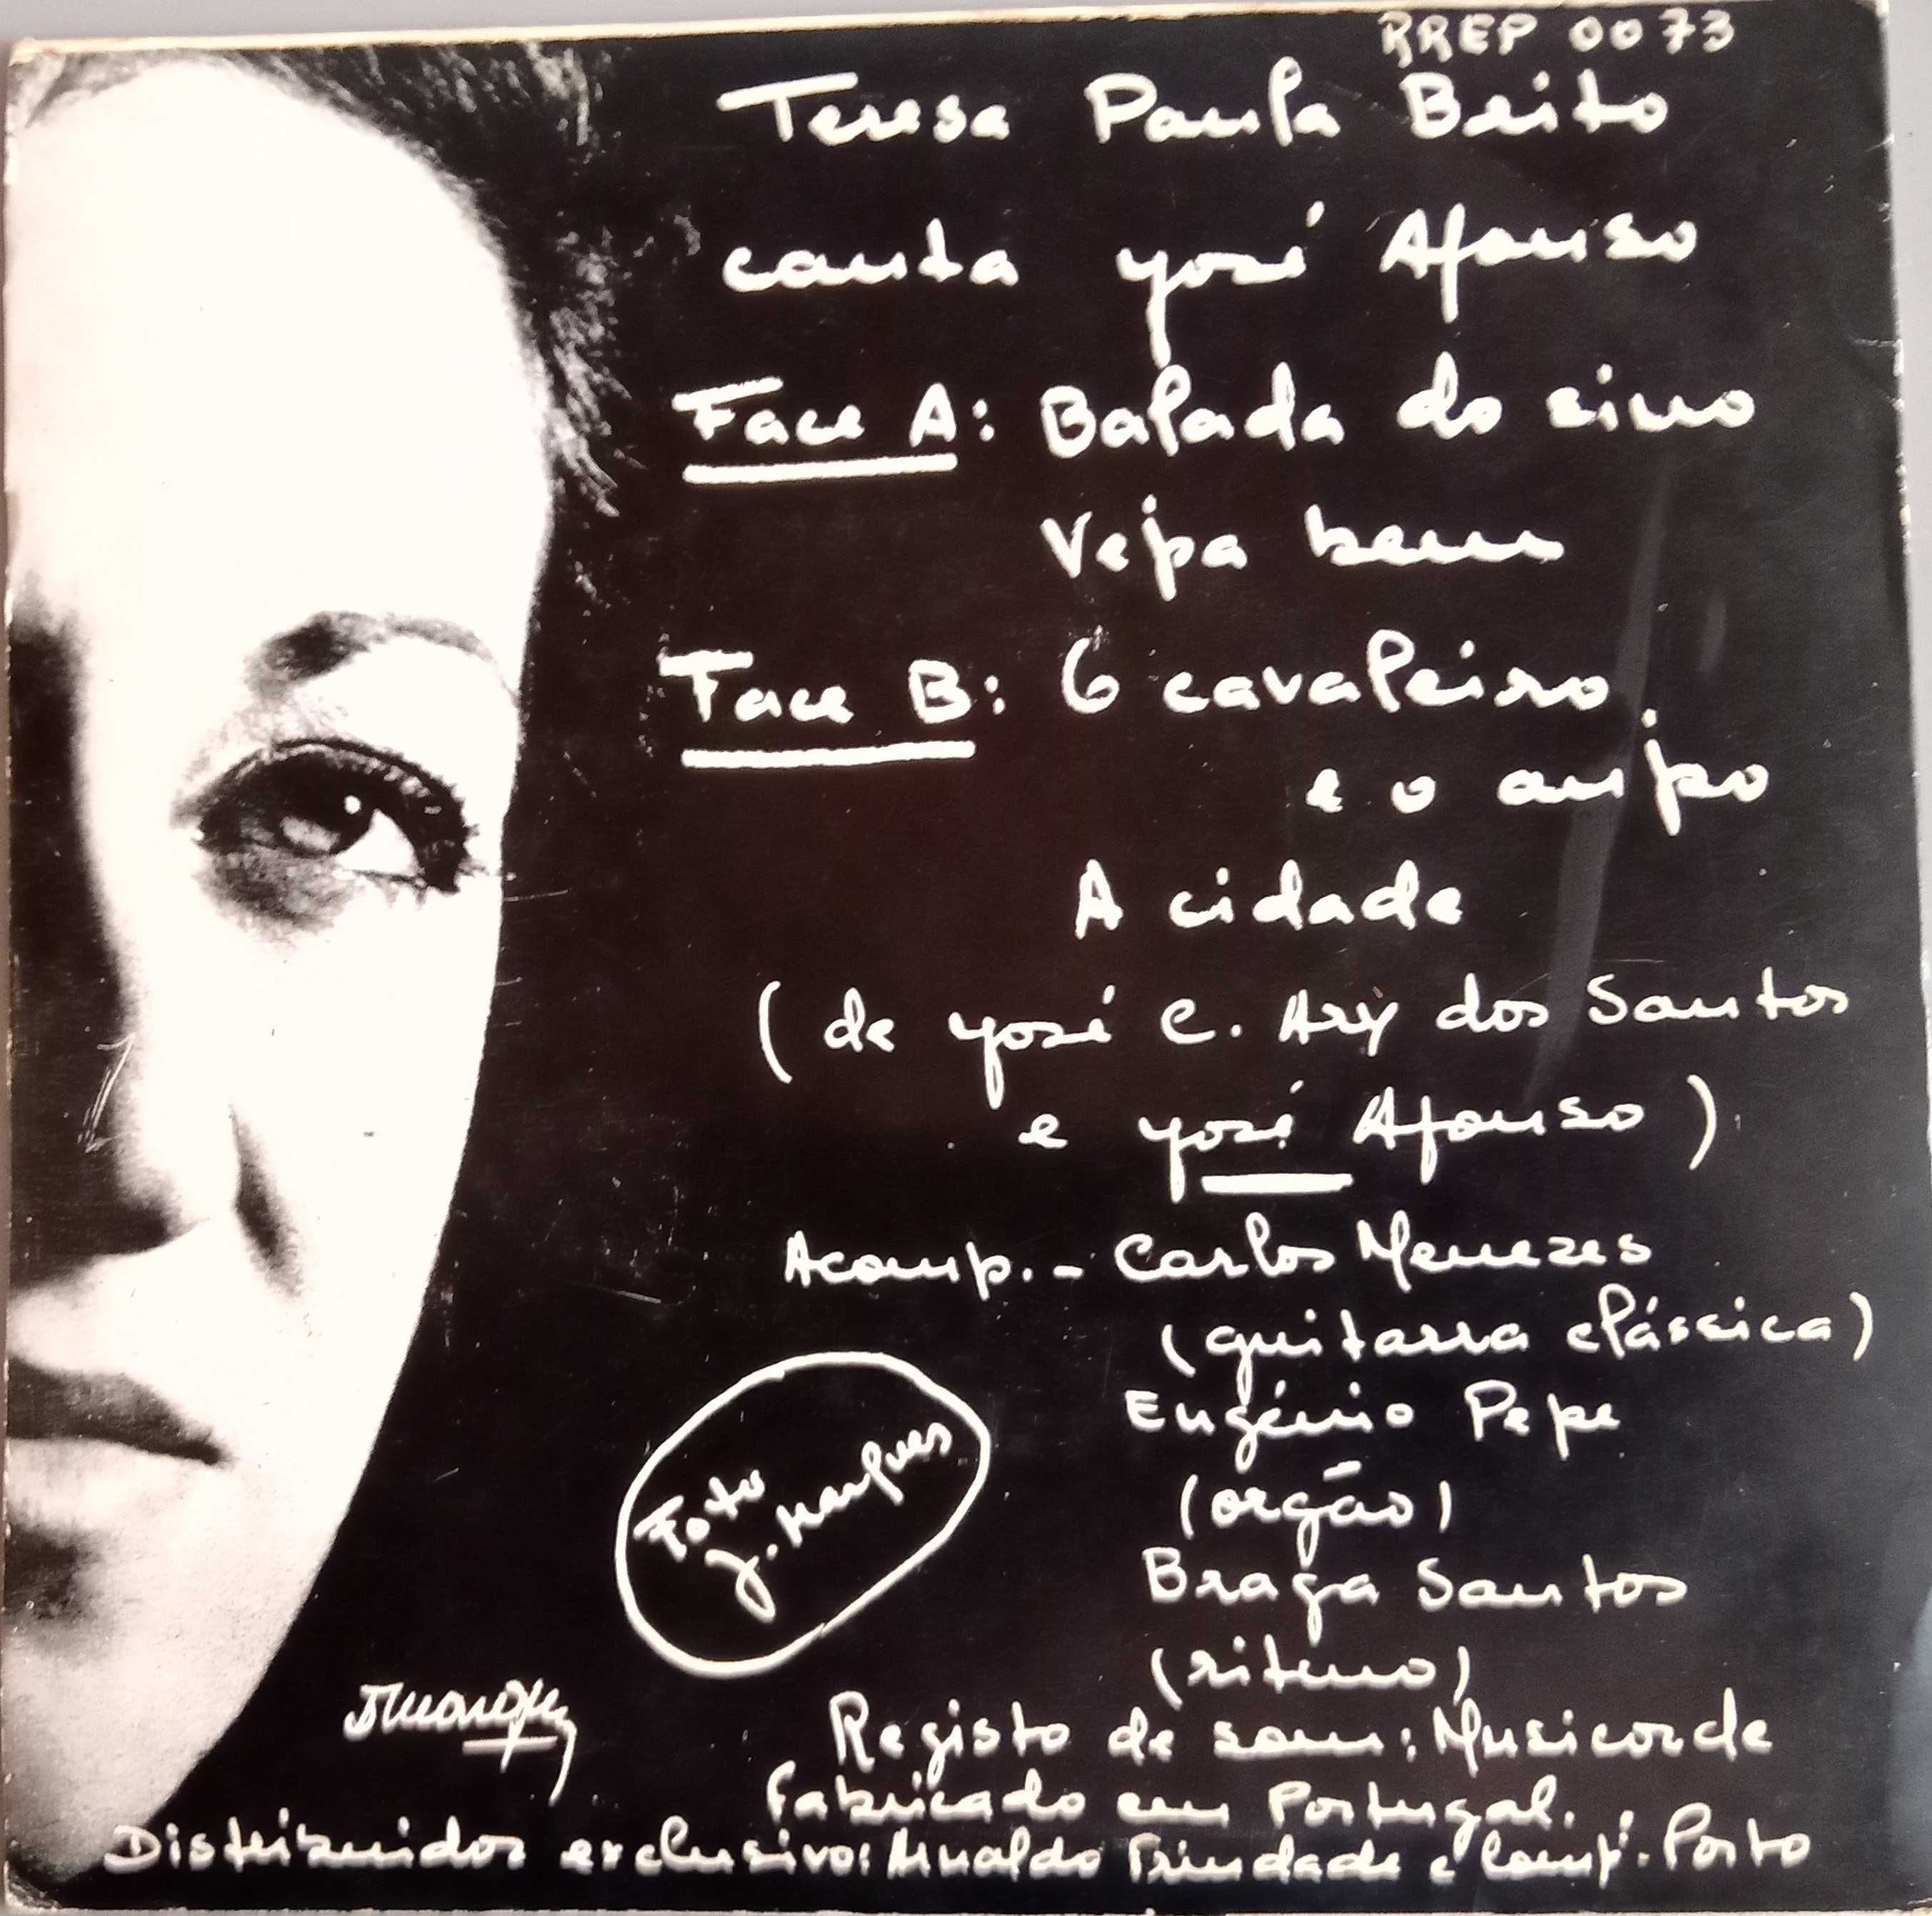 RREP 0073
Teresa Paula Brito
canta José Afonso
Face A: Balada do sino
Veja bem
Face B: O cavaleiro
e o anjo
A cidade
(de José C. Ary dos Santos
e José Afonso)
Acomp. - Carlos Menezes
(guitarra clássica)
Eugénio Pepe
(orgão)
Braga Santos
(ritmo)
Foto
J. Marques
JMarques
Registo de som: Musicorde
Fabricado em Portugal.
Distribuidor exclusivo: Arnaldo Trindade e Comp.. Porto